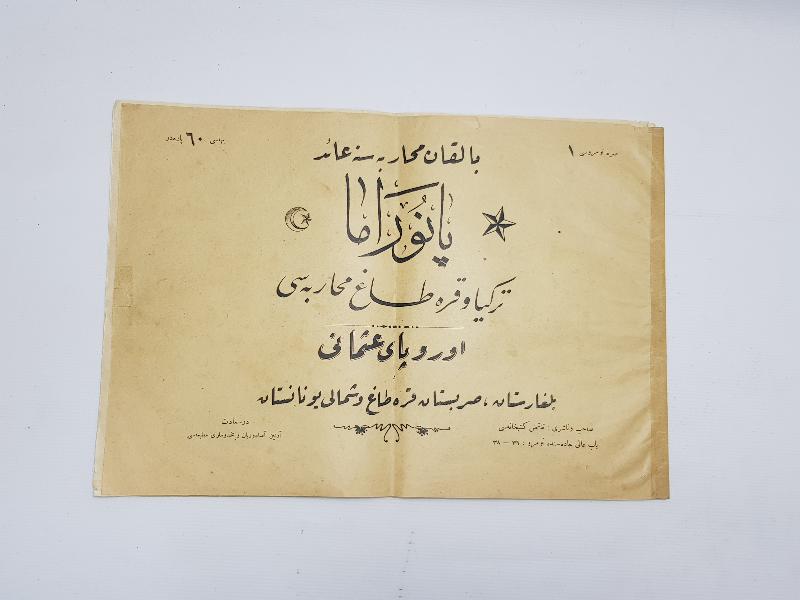 نومروسی ۱
بهاسی ٦٠ پاره‌در
بالقان محاربه سنه عائد
پانوراما
تركیا و قره طاغ محاربه سی
اوروپای عثمانی
بلغارستان ، صربستان قره طاغ و شمالی یونانستان
صاحب و ناشری : كتبخانه‌سی
باب عالی جاده‌سنده نومرو : ٣٩ — ٣٨
درسعادت